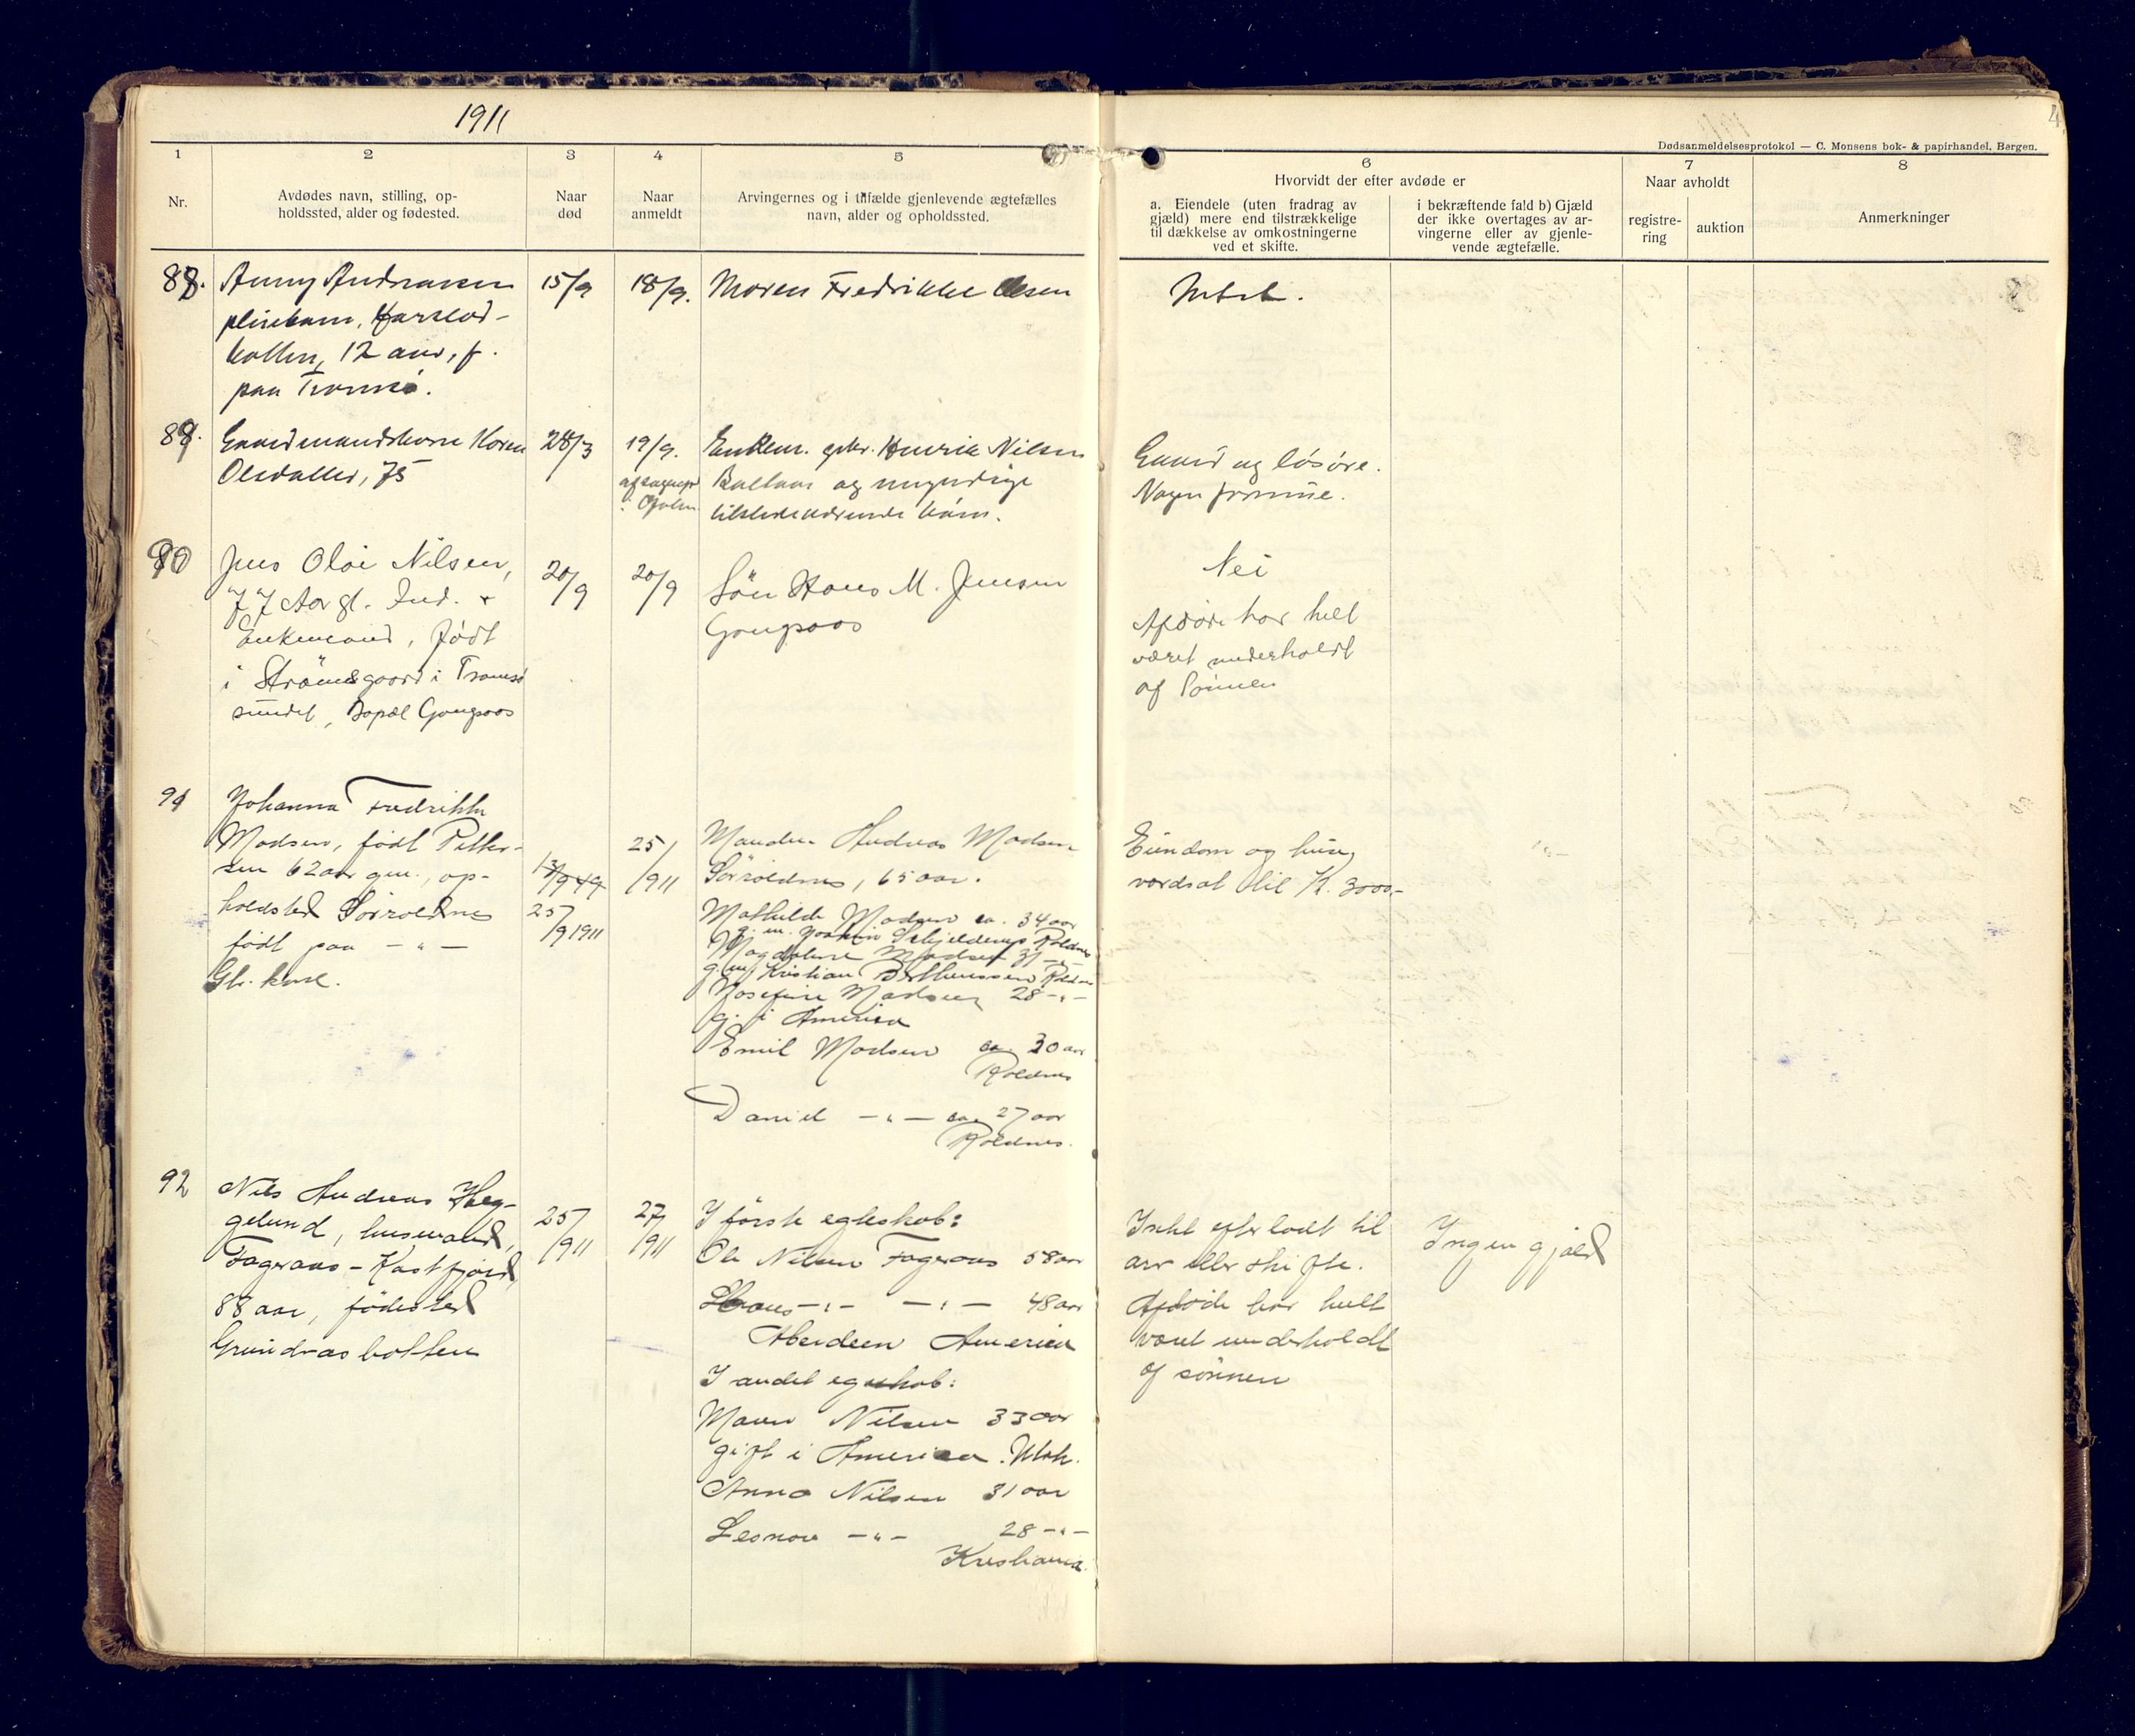 1911
Dødsanmeldelsesprotokol — C. Monsens bok- & papirhandel, Bergen.
1 2 3 4 5 6 7 8
Nr.
Avdødes navn, stilling, op-
holdssted, alder og fødested.
Naar
død
Naar
anmeldt
Arvingernes og i tilfælde gjenlevende ægtefælles
navn, alder og opholdssted.
Hvorvidt der efter avdøde er
a. Eiendele (uten fradrag av
gjæld) mere end tilstrækkelige
til dækkelse av omkostningerne
ved et skifte.
i bekræftende fald b) Gjæld
der ikke overtages av ar-
vingerne eller av gjenle-
vende ægtefælle.
Naar avholdt
registre-
ring
auktion
Anmerkninger
88.
pleiebarn,
12 aar, f.
paa Tromsø.
15/9
18/9.
Moren Fredrikke Olsen
Intet.
89.
Gaardmandskone Karen
75
28/3
19/9.
Enkem. gbr. Henrik Nilsen
og umyndige
tilstedeværende børn.
Gaard og løsøre.
90
Jens Olai Nilsen,
77 Aar gl. Ind.
Enkemand, født
i Strömsgaard i Tromsö
sundet, Bopæl Gaugsaas
20/9
20/9
Sön Hans M. Jensen
Gaugsaas
Nei
Afdöde har helt
været underholdt
af Sönnen
91
Johanna Fredrikke
Madsen, født Petter-
sen 62 aar gm., op-
holdsted Sörroldnes
født paa -"-
25/9 1911
25/
/911
Manden Andreas Madsen
Sörroldnes, 65 aar.
Mathilde Madsen ca. 34 aar
g. m. Schjelderup Roldnes
Magdalene Madsen 31 -"-
g. m. Kristian Bertheussen Roldnes
Josefine Madsen 28 -"-
g. i America
Emil Madsen ca. 30 aar
Roldnes
Daniel -"- ca. 27 aar
Roldnes.
Eiendom og huse,
værdsat til K. 3000,-
92
Nils Andreas Heg-
gelund, husmand,
Fageraas - Kastfjord,
88 aar, födested
25/
/911
27/
/911
I förste egteskab:
Ole Nilsen Fageraas 58 aar
Hans -"- -"- 48 aar
Aberdeen America
I andet egteskab:
Nilsen 33 aar
gift i America. Utah.
Anna Nilsen 31 aar
Leonore -"- 28 -"-
Kristiania.
Intet efterladt til
arv eller skifte.
Afdöde har helt
været underholdt
af sönnen
Ingen gjæld